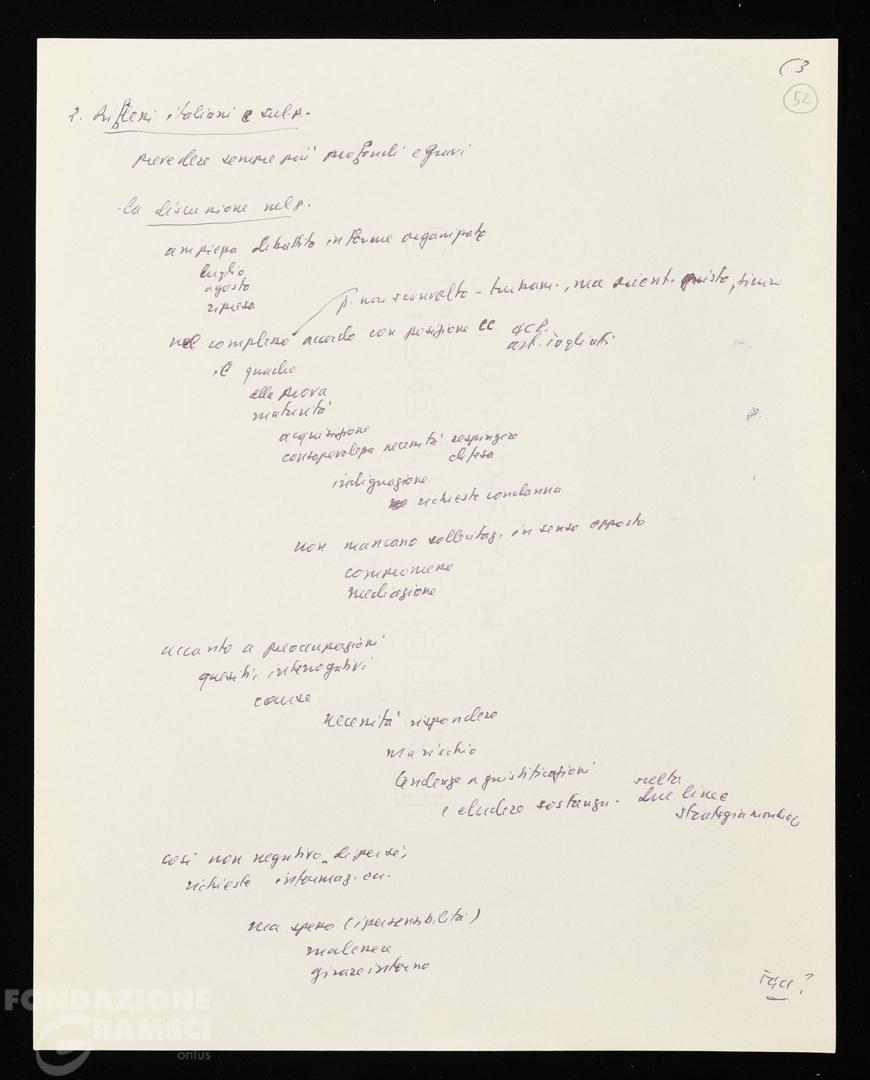 (3
52
2. Riflessi italiani e sul p.
prevedere sempre più profondi e gravi
- la discussione nel p.
ampiezza dibattito in forme organizzate
luglio
agosto
ripresa
p. non sconvolto - , ma orient. giusto, sicuro
nel complesso accordo con posizione CC
art. Togliatti
il quadro
alla prova
maturità
acquisizione
consapevolezza necessità respingere
difesa
indignazione
richieste condanna
non mancano sollecitaz. in senso opposto
compromesso
mediazione
accanto a preoccupazioni
quesiti, interrogativi
cause
necessità rispondere
ma rischio
tendenze a giustificazioni
e eludere sostanza.
scelta
due linee
strategia mondiale
cosi non negativo di per sé,
richieste informaz.
ma spesso (ipersensibilità)
malessere
girare intorno
FONDAZIONE
GRAMSCI
onlus